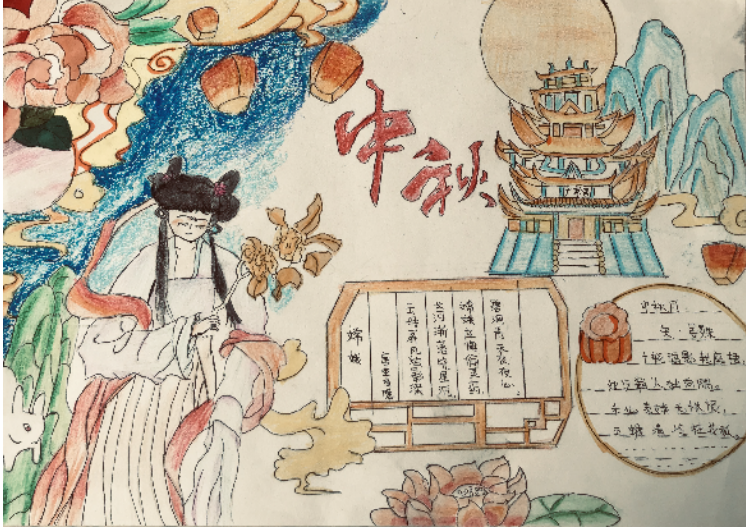 中秋
嫦娥
云母屏风烛影深
长河渐落晓星沉。
嫦娥应悔偷灵药,
碧海青天夜夜心。
中秋月
宋·晏殊
轮霜影转庭梧,
此夕羁人独向隅。
未必素娥无怅恨,
玉蟾清冷桂花孤。